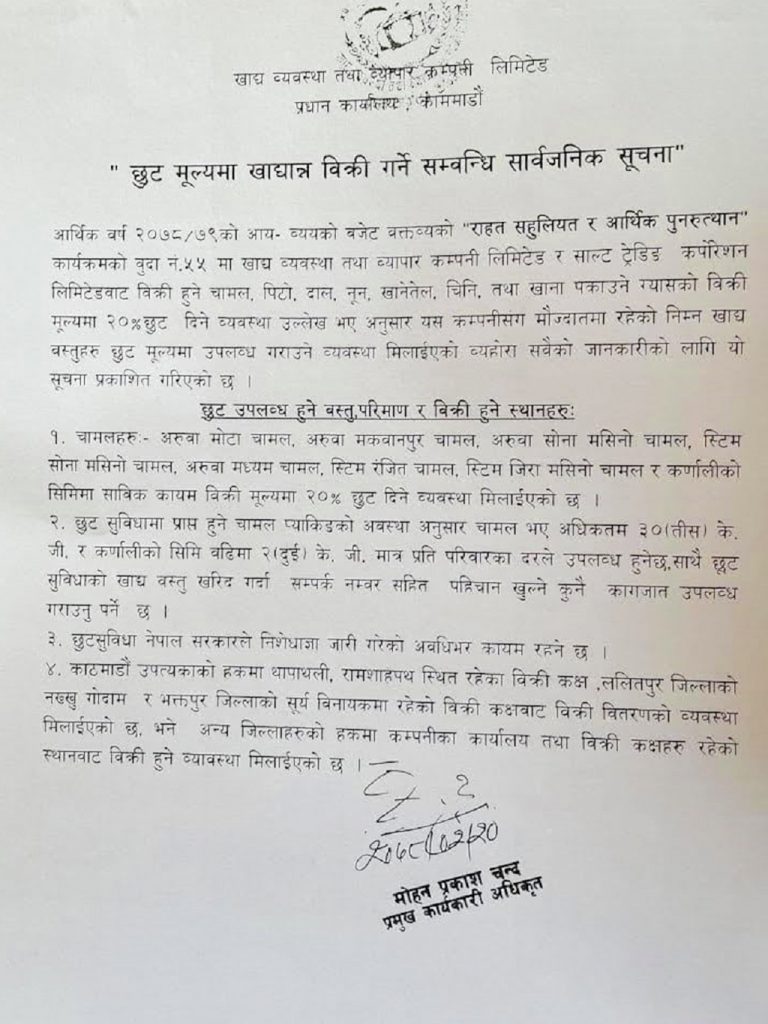 खाद्य व्यवस्था तथा व्यापार कम्पनी लिमिटेड
प्रधान कार्यालय, काँममाडौं
" छुट मूल्यमा खाद्यान्न विक्री गर्ने सम्वन्धि सार्वजनिक सूचना"
आर्थिक वर्ष २०७८/७९को आय- व्ययको वजेट वक्तव्यको "राहत सहुलियत र आर्थिक पुनरुत्थान"
कार्यक्रमको वुदा नं.५५ मा खाद्य व्यवस्था तथा व्यापार कम्पनी लिमिटेड र साल्ट ट्रेडिङ कर्पोरेशन
लिमिटेडवाट विक्री हुने चामल, पिठो, दाल, नून, खानेतेल, चिनि, तथा खाना पकाउने ग्यासको विक्री
मूल्यमा २०%छुट दिने व्यवस्था उल्लेख भए अनुसार यस कम्पनीसंग मौज्दातमा रहेको निम्न खाद्य
वस्तुहरु छुट मूल्यमा उपलव्ध गराउने व्यवस्था मिलाईएको व्यहोरा सवैको जानकारीको लागि यो
सूचना प्रकाशित गरिएको छ ।
छुट उपलव्ध हुने वस्तु,परिमाण र विक्री हुने स्थानहरु:
१. चामलहरु:- अरुवा मोटा चामल, अरुवा मकवानपुर चामल, अरुवा सोना मसिनो चामल, स्टिम
सोना मसिनो चामल, अरुवा मध्यम चामल, स्टिम रंजित चामल, स्टिम जिरा मसिनो चामल र कर्णालीको
सिमिमा साविक कायम विक्री मूल्यमा २०% छुट दिने व्यवस्था मिलाईएको छ ।
२. छुट सुविधामा प्राप्त हुने चामल प्याकिङको अवस्था अनुसार चामल भए अधिकतम ३०(तीस) के.
जी. र कर्णालीको सिमि वढिमा २(दुई) के. जी. मात्र प्रति परिवारका दरले उपलव्ध हुनेछ,साथै छूट
सुविधाको खाद्य वस्तु खरिद गर्दा सम्पर्क नम्वर सहित पहिचान खुल्ने कुनै कागजात उपलव्ध
गराउनु पर्ने छ ।
३. छुटसुविधा नेपाल सरकारले निशेधाज्ञा जारी गरेको अवधिभर कायम रहने छ ।
४. काठमाडौं उपत्यकाको हकमा थापाथली, रामशाहपथ स्थित रहेका विक्री कक्ष ,ललितपुर जिल्लाको
नख्खु गोदाम र भक्तपुर जिल्लाको सूर्य विनायकमा रहेको विक्री कक्षवाट विक्री वितरणको व्यवस्था
मिलाईएको छ. भने अन्य जिल्लाहरुको हकमा कम्पनीका कार्यालय तथा विक्री कक्षहरु रहेको
स्थानवाट विक्री हुने व्यावस्था मिलाईएको छ ।
२०७८/०२/२०
मोहन प्रकाश चन्द
प्रमुख कार्यकारी अधिकृत